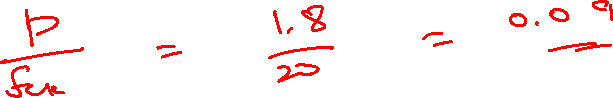 p/fck = 1.8/20 = 0.09